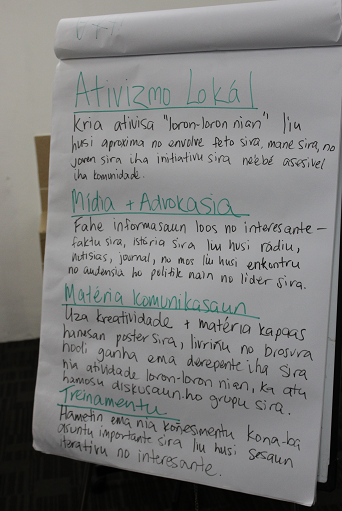 Ativizmo Lokál
Kria ativisa "loron-loron nian" liu
husi aproxima no envolve feto sira, mane sira, no
joven sira iha inisiativu sira ne'ebé asesivel
iha komunidade.
Mídia + Advokasia
Fahe informasaun loos no interesante –
faktu sira, istória sira liu husi rádiu,
notisias, journal, no mos liu husi enkontru
no audensia ho politik nain no lider sira.
Matéria komunikasaun
Uza kreatividade + matéria kapaas
hanesan poster sira, livriñu no brosura
hodi ganha ema derepente iha sira
nia atividade loron-loron nian, ka atu
hamosu diskusaun ho grupu sira.
Treinamentu
Hametin ema nia koñesimentu kona-ba
asuntu importante sira liu husi sesaun
iterativu no interesante.